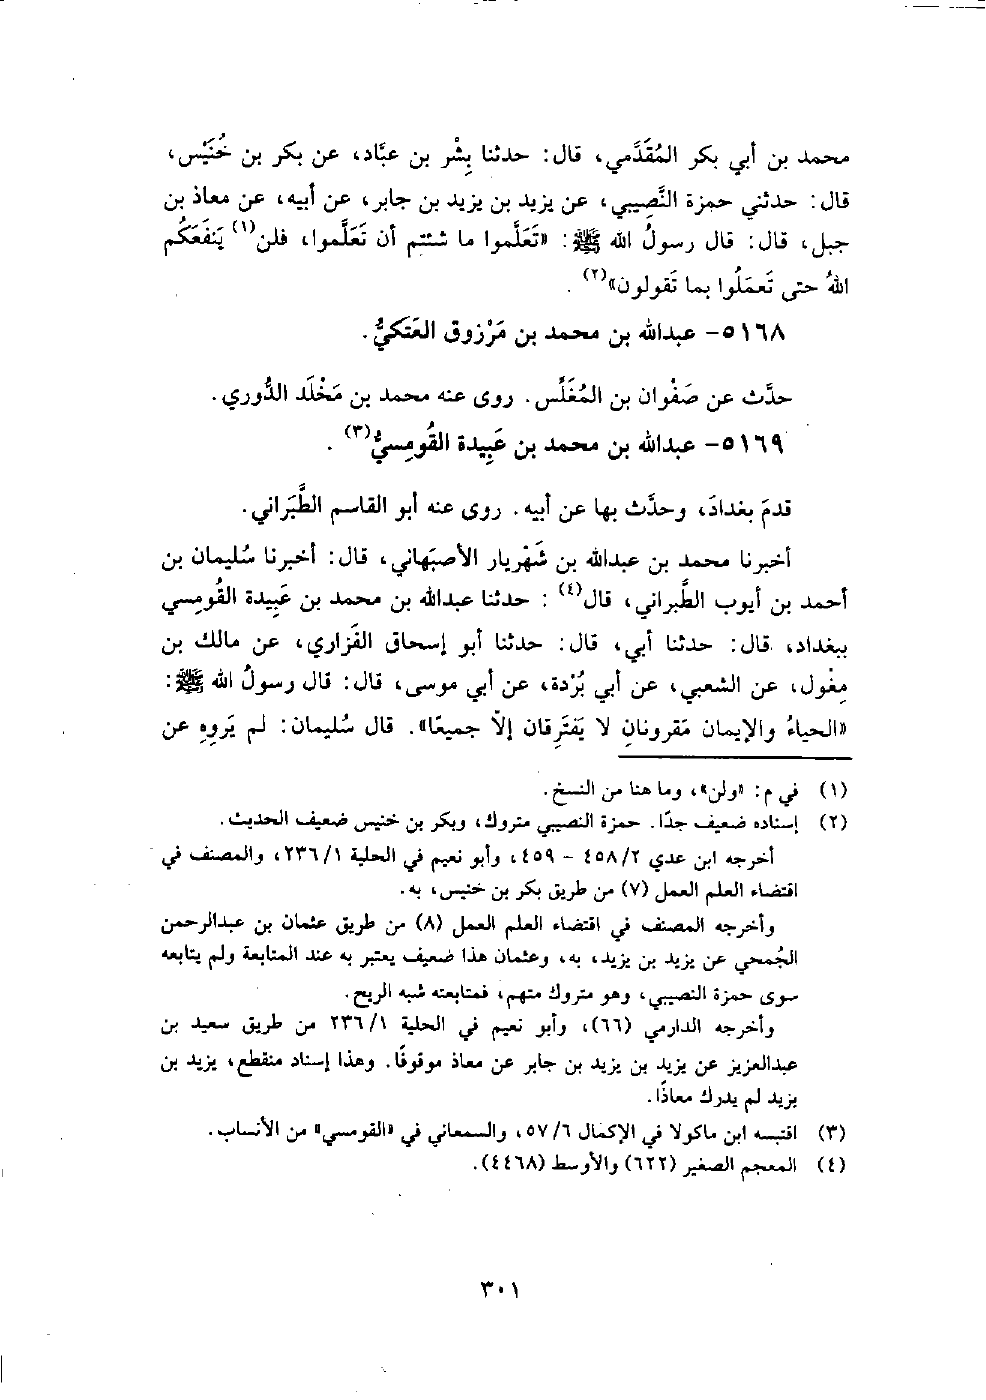 محمد بن أبي بكر المُقَدَّمي، قال: حدثنا بِشْر بن عبَّاد، عن بكر بن خُنَيْس،
قال: حدثني حمزة النَّصِيبي، عن يزيد بن يزيد بن جابر، عن أبيه، عن معاذ بن
جبل، قال: قال رسولُ الله ﷺ: «تَعَلَّموا ما شئتم أن تَعَلَّموا، فلن(١) يَنفَعَكُم
اللهُ حتى تَعمَلُوا بما تَقولون»(٢) .
٥١٦٨- عبدالله بن محمد بن مَرْزوق العَتَكيُّ.
حدَّث عن صَفْوان بن المُغَلِّس. روى عنه محمد بن مَخْلَد الدُّوري.
٥١٦٩- عبدالله بن محمد بن عَبِيدة القُومِسيُّ(٣) .
قدمَ بغدادَ، وحدَّث بها عن أبيه. روى عنه أبو القاسم الطَّبَراني.
أخبرنا محمد بن عبدالله بن شَهْريار الأصبَهاني، قال: أخبرنا سُليمان بن
أحمد بن أيوب الطَّبراني، قال(٤) : حدثنا عبدالله بن محمد بن عَبِيدة القُومِسي
ببغداد، قال: حدثنا أبي، قال: حدثنا أبو إسحاق الفَزاري، عن مالك بن
مِغْول، عن الشعبي، عن أبي بُرْدة، عن أبي موسى، قال: قال رسولُ الله ﷺ:
«الحياءُ والإيمان مَقرونانِ لا يَفتَرِقان إلاّ جميعًا». قال سُليمان: لم يَروِهِ عن
(١) في م: «ولن»، وما هنا من النسخ.
(٢) إسناده ضعيف جدًا. حمزة النصيبي متروك، وبكر بن خنيس ضعيف الحديث.
أخرجه ابن عدي ٢/ ٤٥٨ - ٤٥٩، وأبو نعيم في الحلية ١/ ٢٣٦، والمصنف في
اقتضاء العلم العمل (٧) من طريق بكر بن خنيس، به.
وأخرجه المصنف في اقتضاء العلم العمل (٨) من طريق عثمان بن عبدالرحمن
الجُمحي عن يزيد بن يزيد، به، وعثمان هذا ضعيف يعتبر به عند المتابعة ولم يتابعه
سوى حمزة النصيبي، وهو متروك متهم، فمتابعته شبه الريح.
وأخرجه الدارمي (٦٦)، وأبو نعيم في الحلية ١/ ٢٣٦ من طريق سعيد بن
عبدالعزيز عن يزيد بن يزيد بن جابر عن معاذ موقوفًا. وهذا إسناد منقطع، يزيد بن
يزيد لم يدرك معاذًا.
(٣) اقتبسه ابن ماكولا في الإكمال ٦/ ٥٧، والسمعاني في «القومسي» من الأنساب.
(٤) المعجم الصغير (٦٢٢) والأوسط (٤٤٦٨).
٣٠١